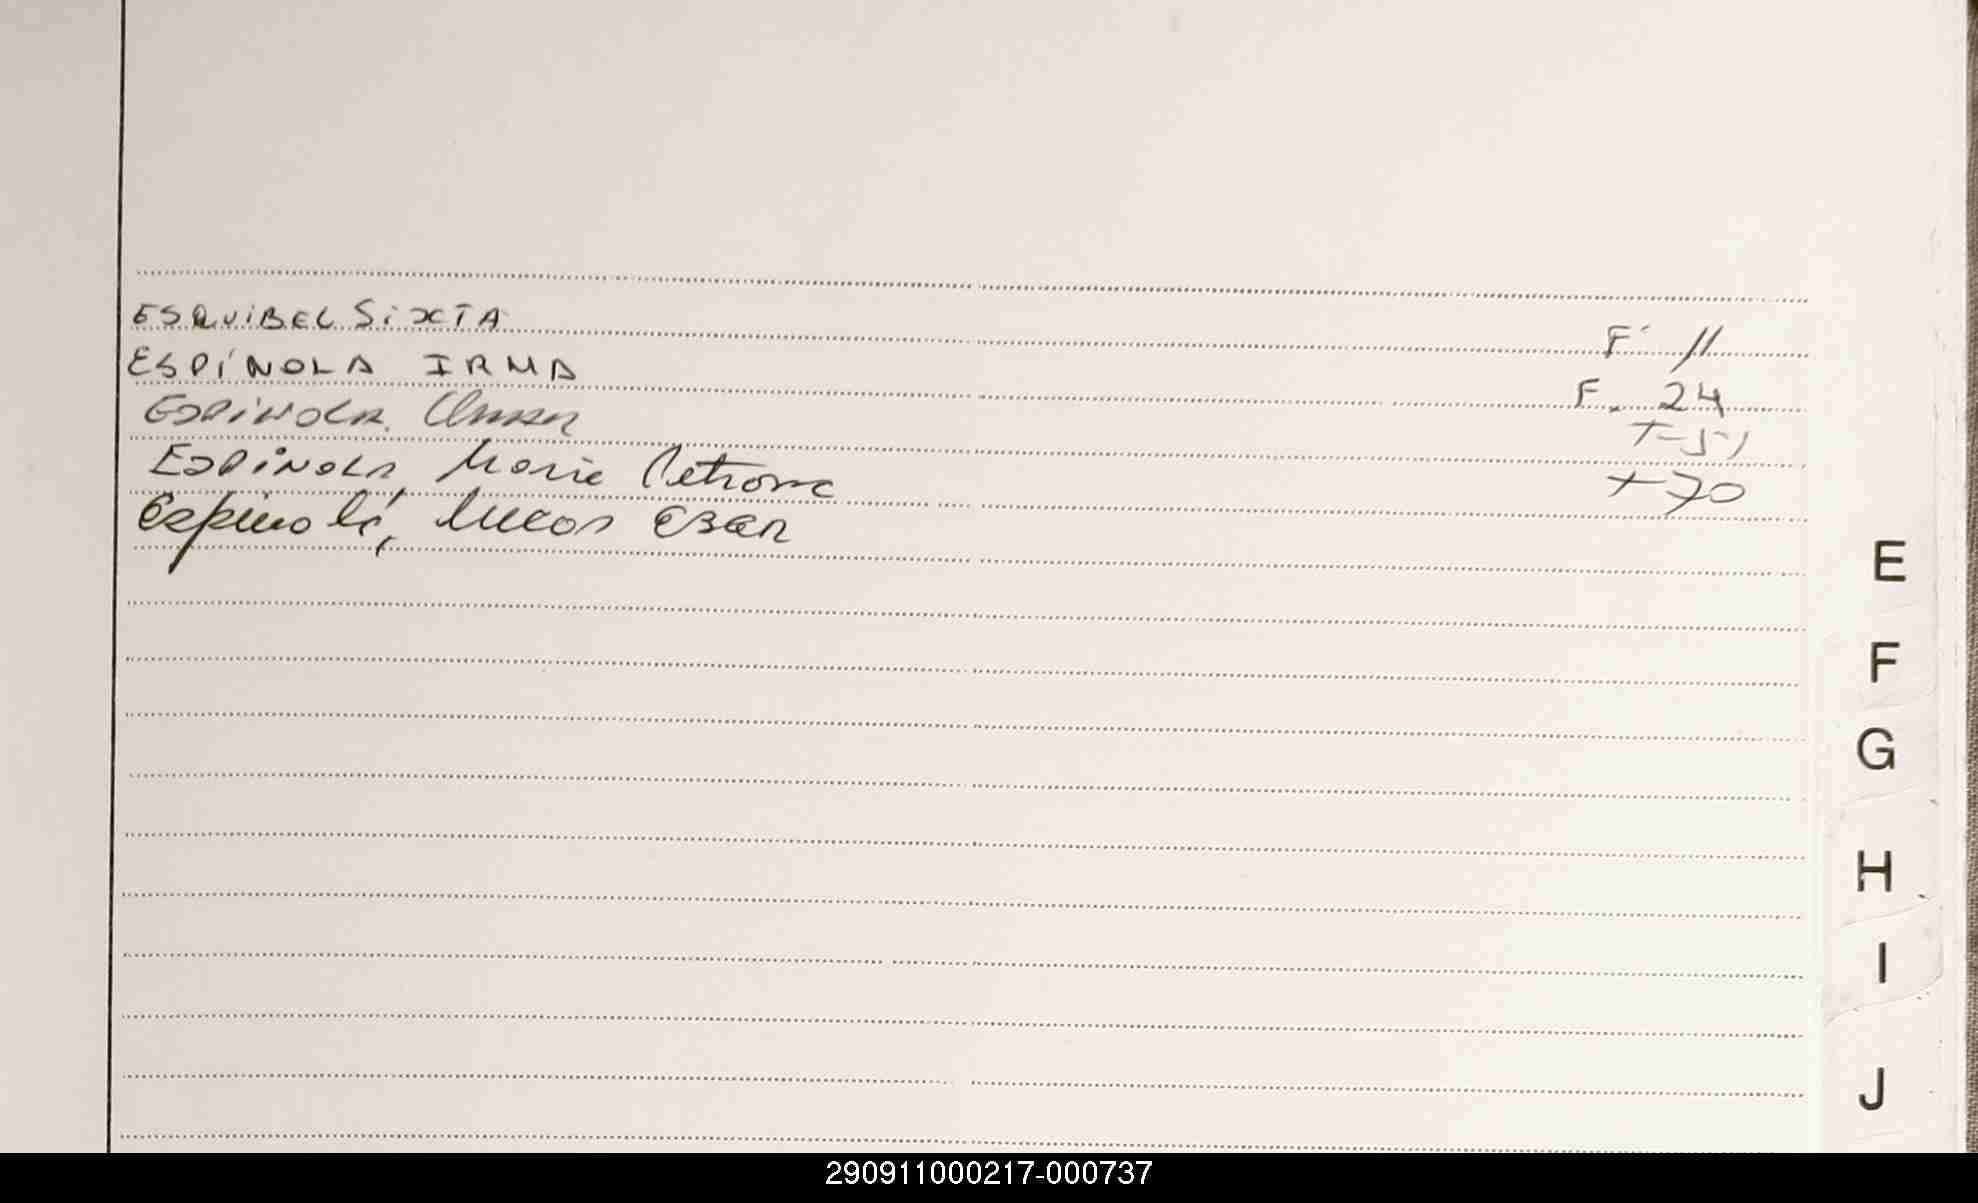 ESQUIBEL SIXTA F 11
ESPÍNOLA IRMA F. 24
ESPINOLA F-51
ESPINOLA, Maria Petrona F 70
Espinola, Lucas
E
F
G
H
I
J
290911000217-000737